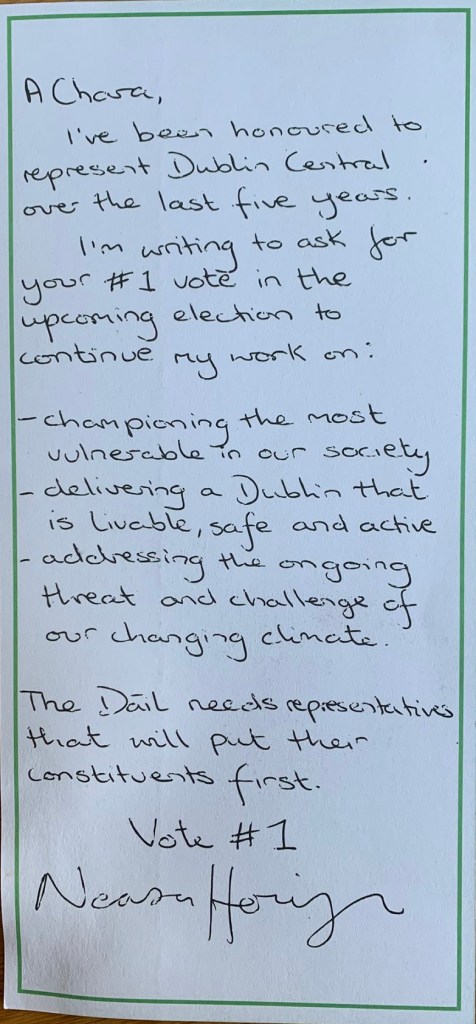 A Chara,
I've been honoured to
represent Dublin Central
over the last five years.
I'm writing to ask for
your #1 vote in the
upcoming election to
continue my work on:
- championing the most
vulnerable in our society
- delivering a Dublin that
is livable, safe and active
- addressing the ongoing
threat and challenge of
our changing climate.
The Dáil needs representatives
that will put their
constituents first.
Vote #1
Neasa Hourigan